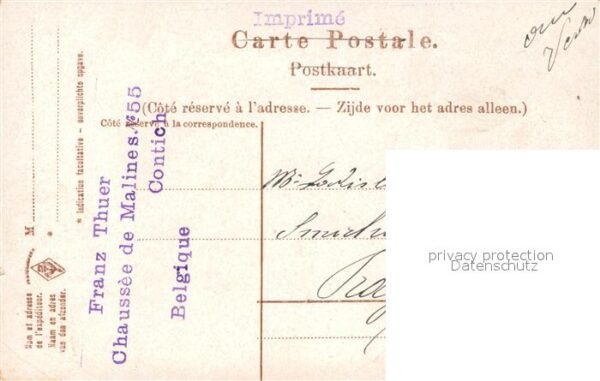 Imprimé
Carte Postale.
Postkaart.
(Côté réservé à l'adresse. — Zijde voor het adres alleen.)
Côté réservé à la correspondence.
Franz Thuer
Chaussèe de Malines. № 55
Contich
Belgique
* Indication facultative — onverplichte opgave.
M
*
Nom et adresse
de l'expéditeur.
Naam en adres
van den afzender.
privacy protection
Datenschutz